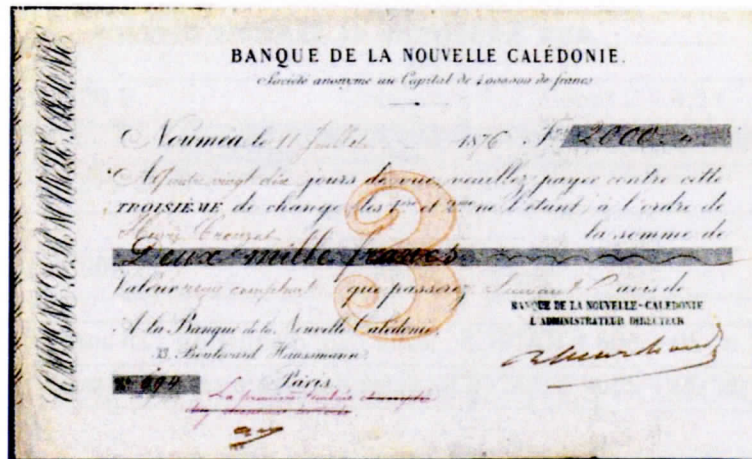 BANQUE DE LA NOUVELLE CALÉDONIE.
Société anonyme au Capital de 4000000 de francs
Nouméa le 11 Juillet 1876 2000
A quatre vingt dix jours de vue veuillez payer contre cette
TROISIÈME de change les 1ère et 2me ne l'étant, à l'ordre de
la somme de
Deux mille francs
Valeur reçu comptant que passerez suivant avis de
BANQUE DE LA NOUVELLE-CALEDONIE
L'ADMINISTRATEUR DIRECTEUR
A la Banque de la Nouvelle Calédonie,
13, Boulevard Haussmann,
Paris
No 694
La première
3